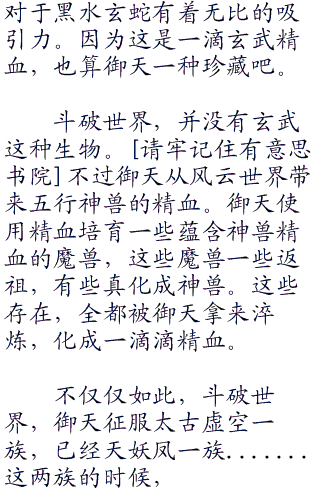 对于黑水玄蛇有着无比的吸
引力。因为这是一滴玄武精
血，也算御天一种珍藏吧。
斗破世界，并没有玄武
这种生物。[请牢记住有意思
书院]不过御天从风云世界带
来五行神兽的精血。御天使
用精血培育一些蕴含神兽精
血的魔兽，这些魔兽一些返
祖，有些真化成神兽。这些
存在，全都被御天拿来淬
炼，化成一滴滴精血。
不仅仅如此，斗破世
界，御天征服太古虚空一
族，已经天妖凤一族.......
这两族的时候，